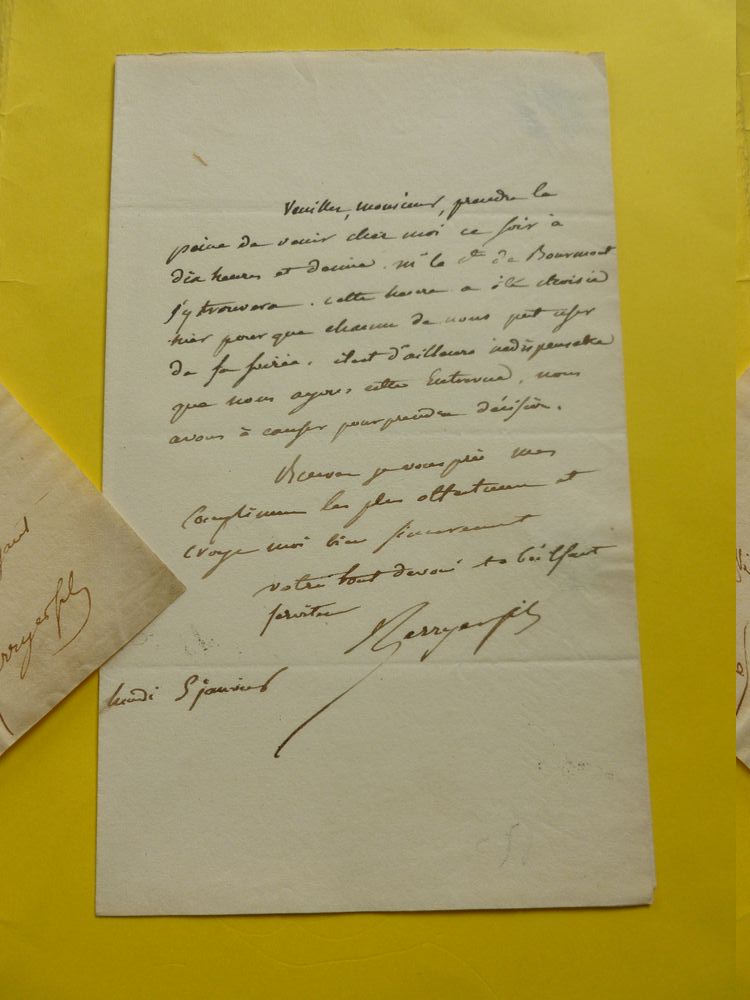 Veuillez, monsieur, prendre la
peine de venir chez moi ce soir à
dix heures et demie. mr le Cte de Bourmont
s'y trouvera. cette heure a été choisie
hier pour que chacun de nous put user
de sa soirée. il est d'ailleurs indispensable
que nous ayons cette Entrevue, nous
avons à causer pour prendre décision.
Recevez je vous prie mes
Complimens les plus affectueux et
croyez moi bien sincerement
votre tout devoué et obéissant
serviteur
Berryer fils
lundi 5 janvier
rryer fils